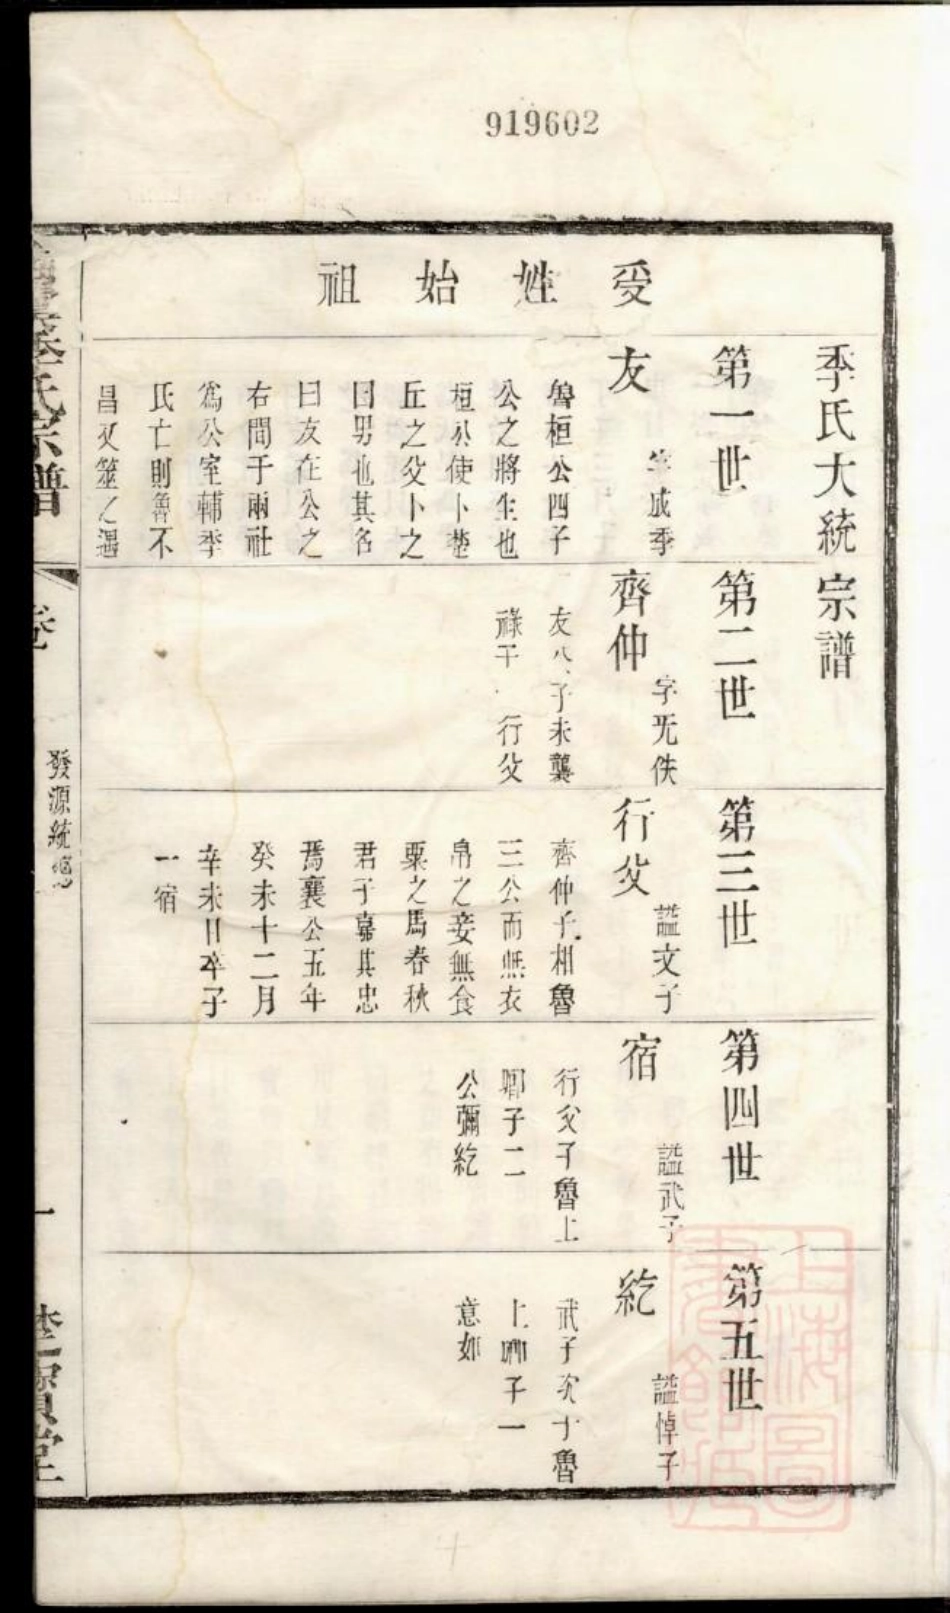 919602
受姓始祖
季氏大統宗譜
第一世
友
成季
魯桓公四子
公之將生也
桓公使卜楚
丘之父卜之
曰男也其名
曰友在公之
右間于兩社
為公室輔季
氏亡則魯不
昌又筮之遇
第二世
齊仲
字旡佚
友 子未襲
祿 行父
第三世
行父
謚文子
齊仲子相魯
三公而無衣
帛之妾無食
粟之馬春秋
君子嘉其忠
焉襄公五年
癸未十二月
辛未日卒子
一宿
第四世
宿
謚武子
行父子魯上
卿子二
公彌紇
第五世
紇
謚悼子
武子次子魯
上卿子一
意如
季氏宗譜
發源統總
一
上海圖書館藏